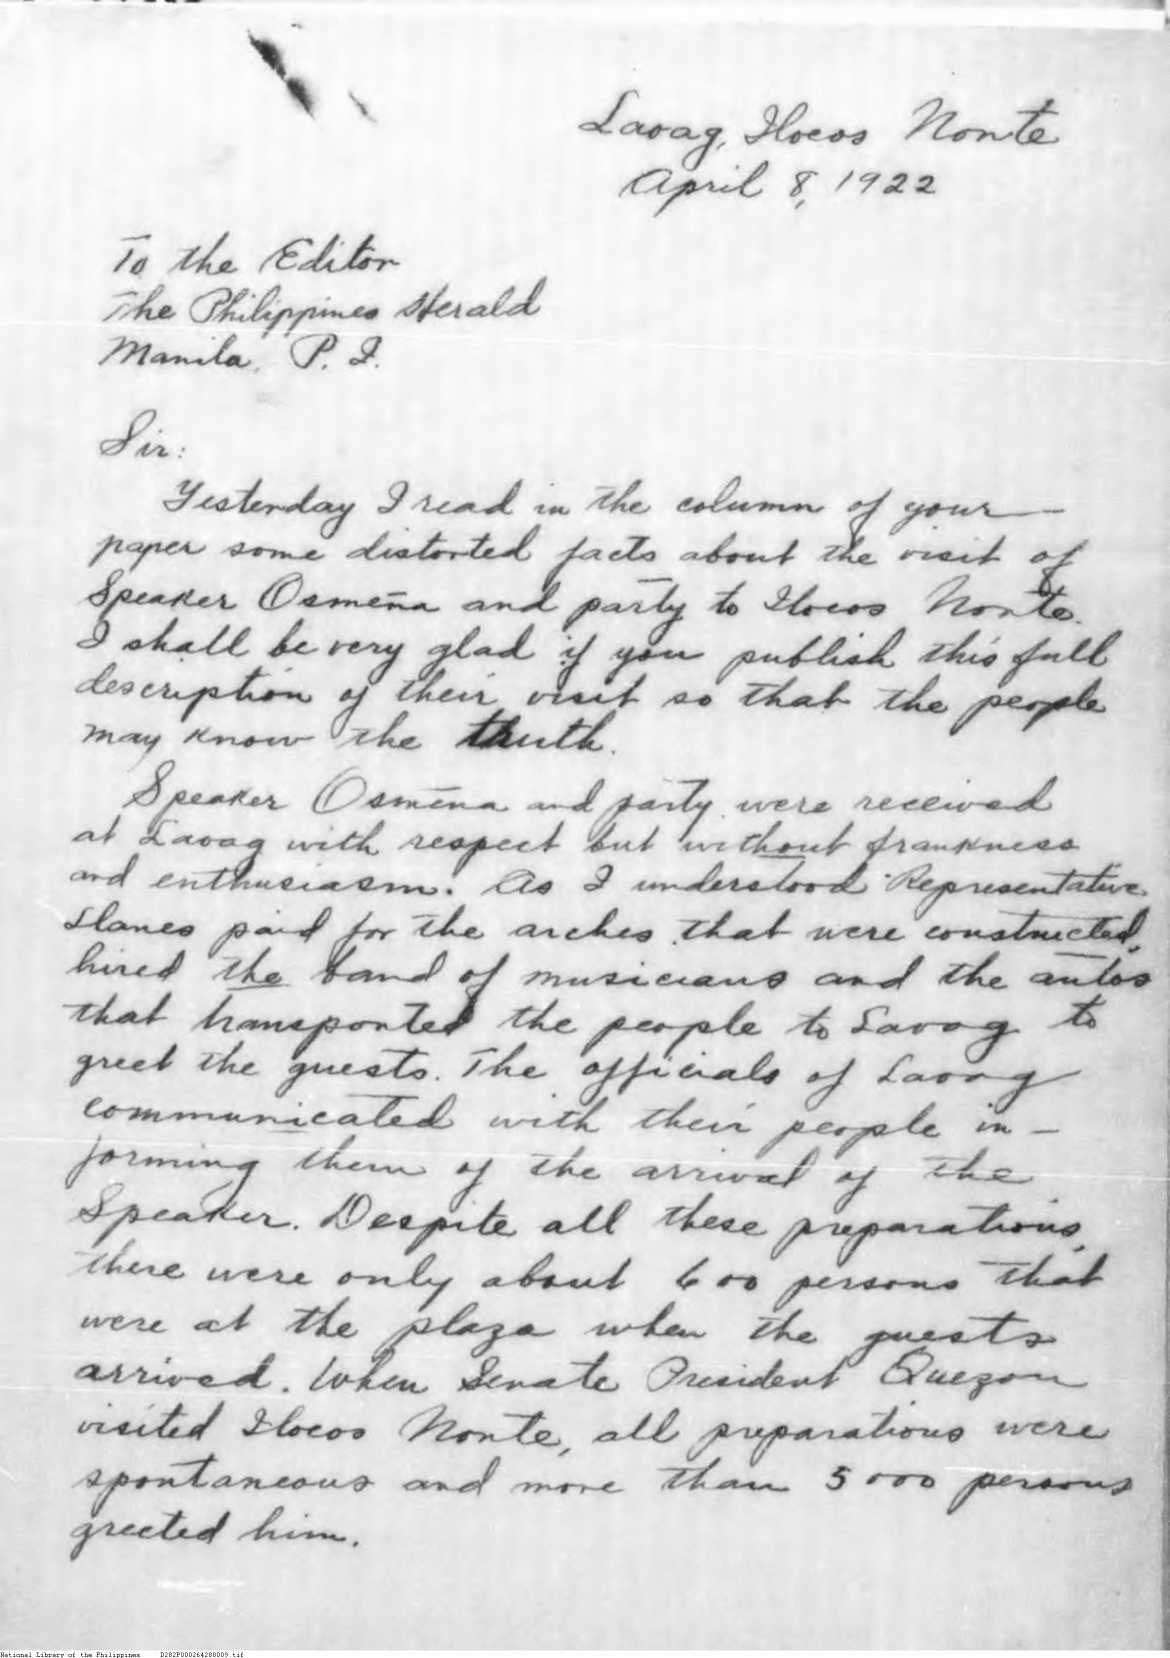 Laoag, Ilocos Norte
April 8, 1922
To the Editor
The Philippines Herald
Manila, P. I.
Sir:
Yesterday I read in the column of your
paper some distorted facts about the visit of
Speaker Osmeña and party to Ilocos Norte.
I shall be very glad if you publish this full
description of their visit so that the people
may know the truth.
Speaker Osmeña and party were received
at Laoag with respect but without frankness
and enthusiasm. As I understood Representative
Llanes paid for the arches that were constructed,
hired the band of musicians and the autos
that transported the people to Laoag to
greet the guests. The officials of Laoag
communicated with their people in-
forming them of the arrival of the
Speaker. Despite all these preparations,
there were only about 600 persons that
were at the plaza when the guests
arrived. When Senate President Quezon
visited Ilocos Norte, all preparations were
spontaneous and more than 5000 persons
greeted him.
National Library of the Philippines D282P000264280009.tif